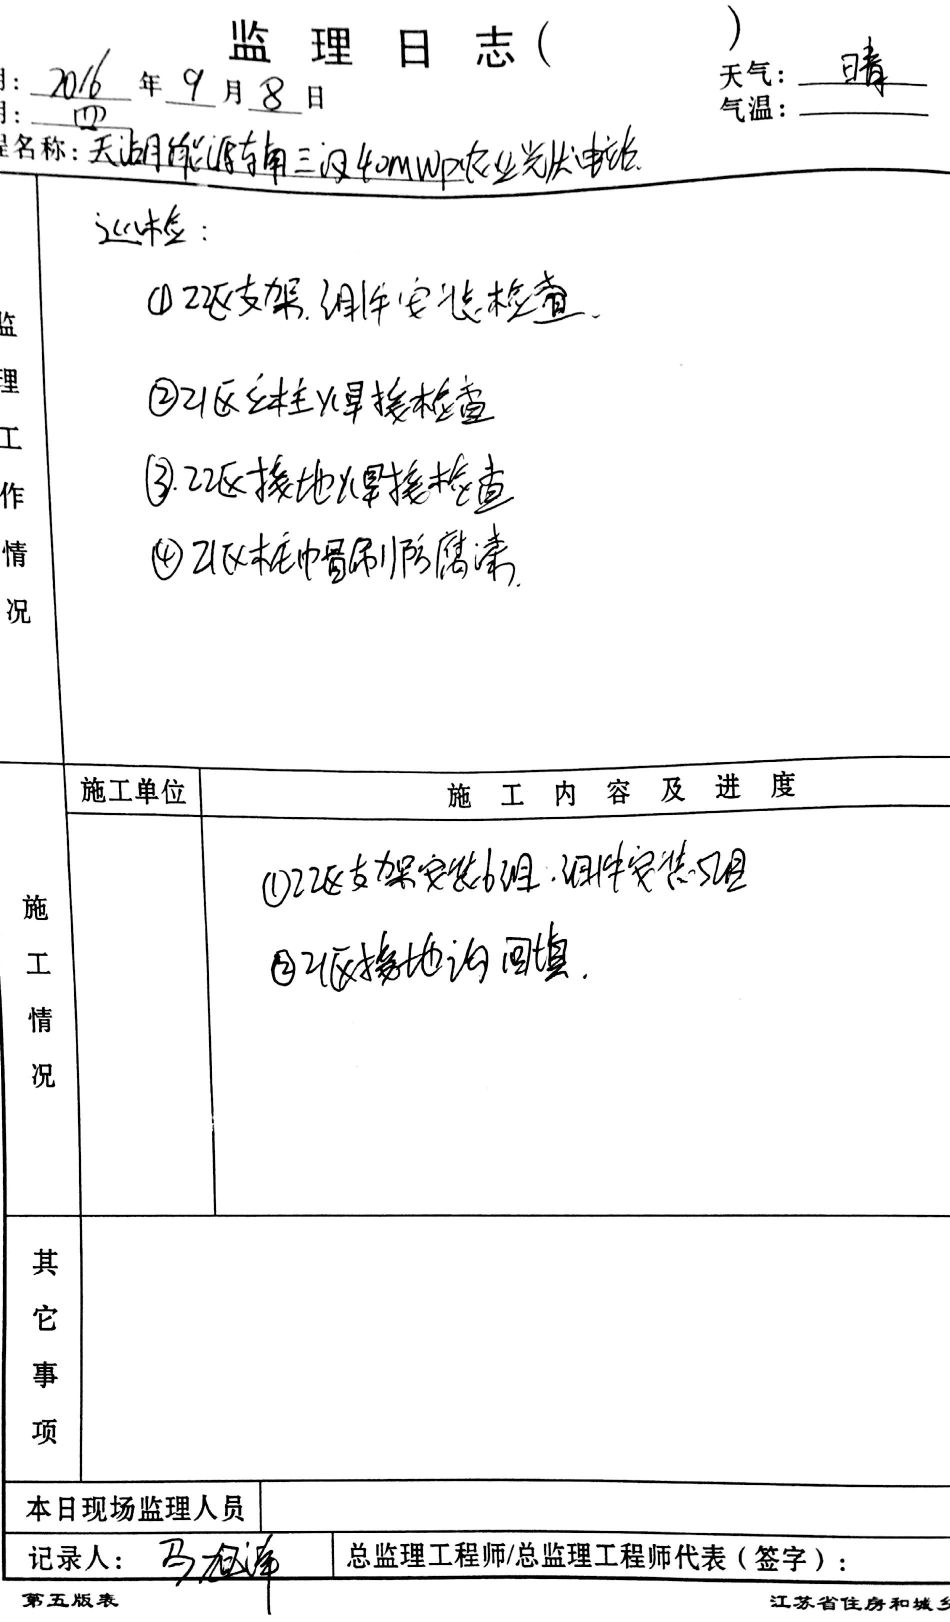 监 理 日 志 (          )
期: 2016 年 9 月 8 日
天气: 晴
期: 四
气温:
程名称: 天湖能源东南三汊40MWp农业光伏电站.
监理工作情况
巡检:
①22区支架.组件安装检查.
②21区立柱焊接检查
③.22区接地焊接检查
④21区桩帽刷防腐漆.
施工单位
施 工 内 容 及 进 度
施工情况
①22区支架安装6组.组件安装5组
②21区接地沟回填.
其它事项
本日现场监理人员
记录人: 马
总监理工程师/总监理工程师代表(签字):
第五版表
江苏省住房和城乡